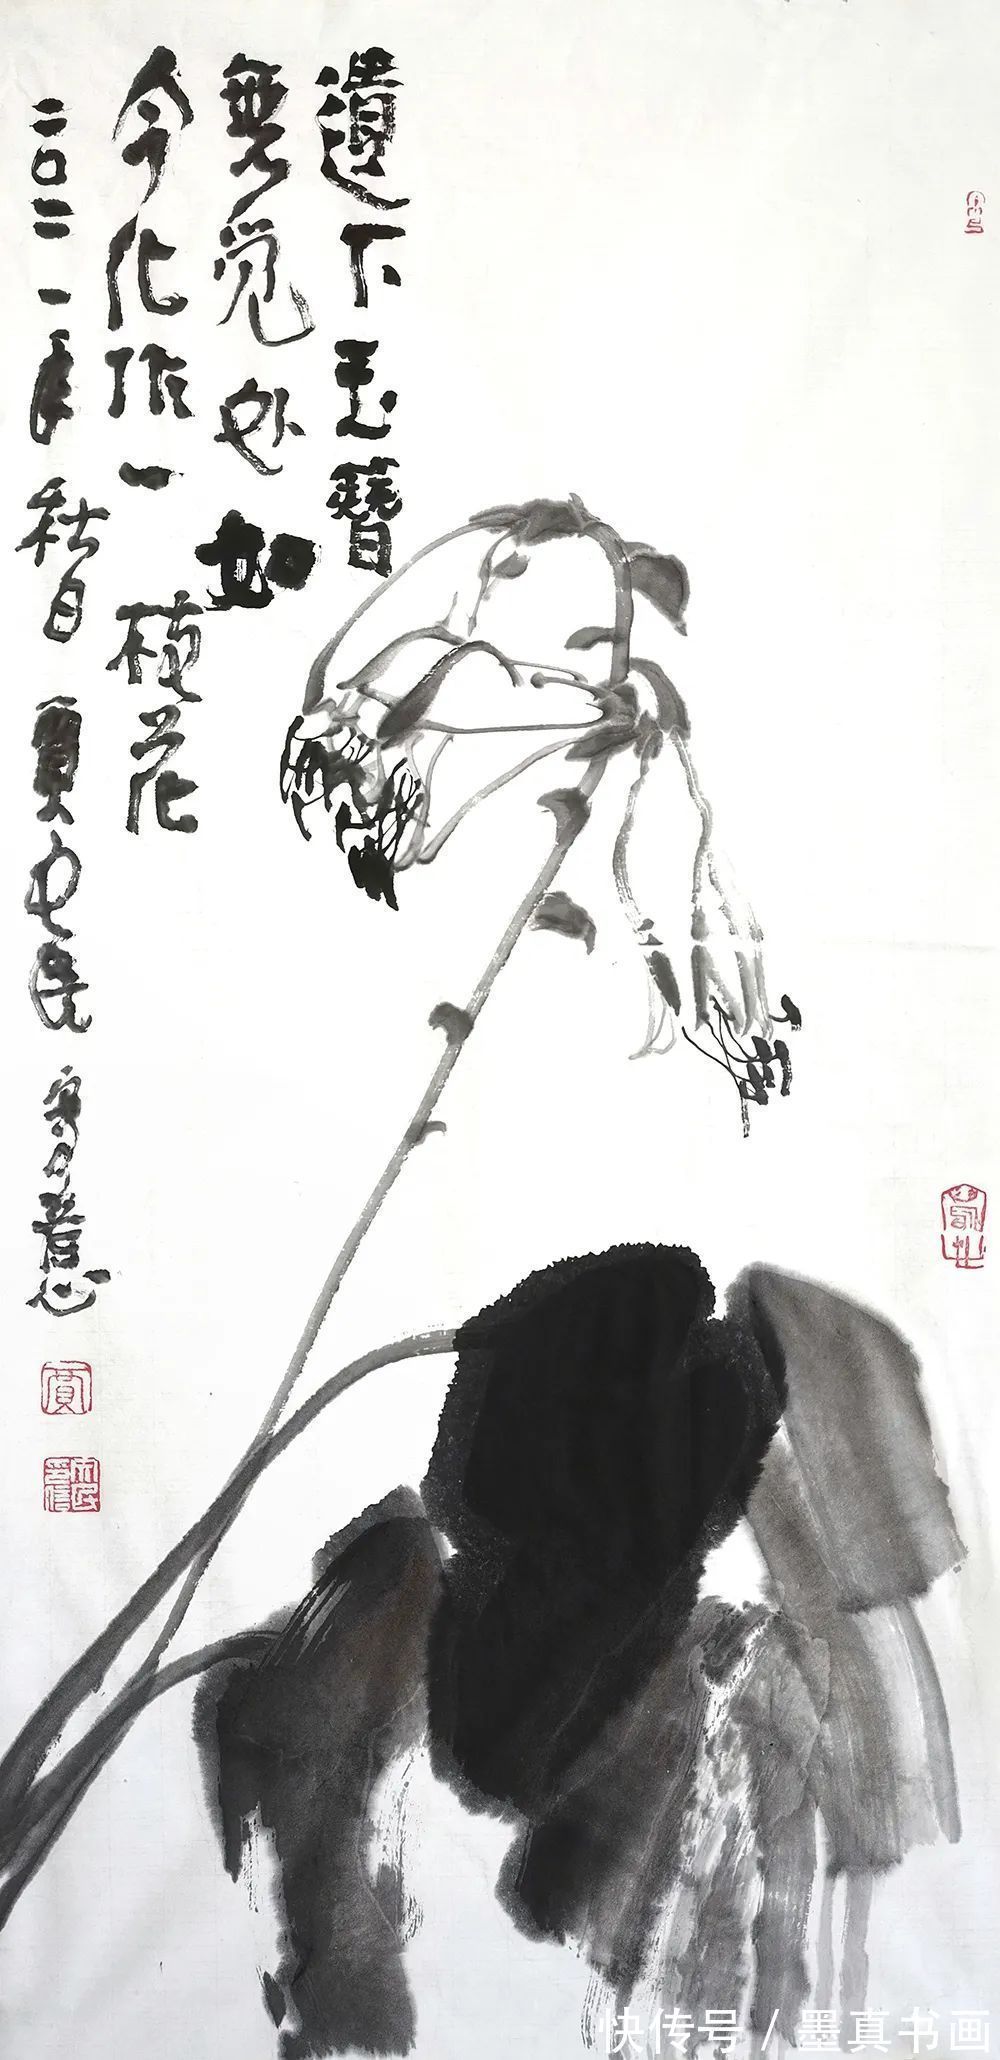 遺下玉簪
無觅处如
今化作一枝花
二〇二一年秋日 賈宝珉 写意
快传号 / 墨真书画